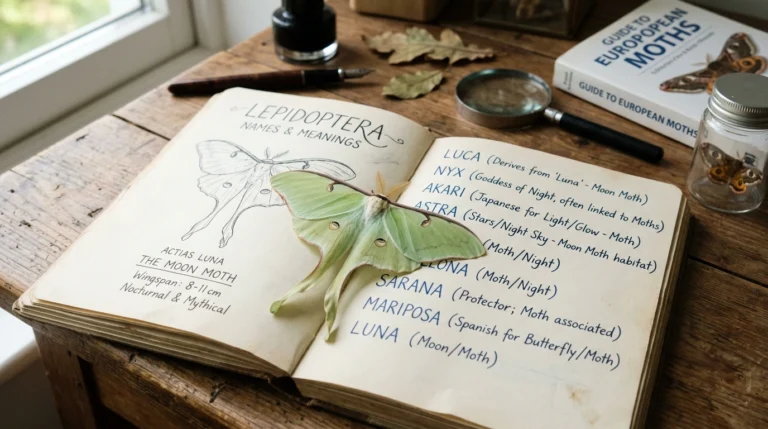 LEPIDOPTERA
NAMES & MEANINGS
ACTIAS LUNA
THE MOON MOTH
Wingspan: 8-11 cm
Nocturnal & Mythical
LUCA (Derives from 'Luna' - Moon Moth)
NYX (Goddess of Night, often linked to Moths)
AKARI (Japanese for Light/Glow - Moth)
ASTRA (Stars/Night Sky - Moon Moth habitat)
(Moth/Night)
(Moth/Night)
SARANA (Protector; Moth associated)
MARIPOSA (Spanish for Butterfly/Moth)
LUNA (Moon/Moth)
GUIDE TO
EUROPEAN
MOTHS
GUIDE TO EUROPEAN MOTHS